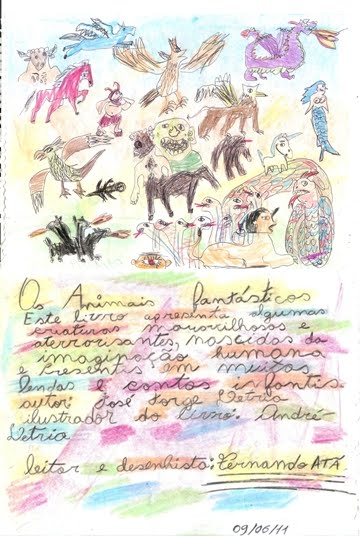 Os Animais fantásticos
Este livro apresenta algumas
criaturas maravilhosas e
aterrorisantes, nascidas da
imaginação humana
e presentes em muitas
lendas e contos infantis.
autor: José Jorge Letria
ilustrador do livro: André
Letria
leitor e desenhista: Fernando ATÁ
09/06/11